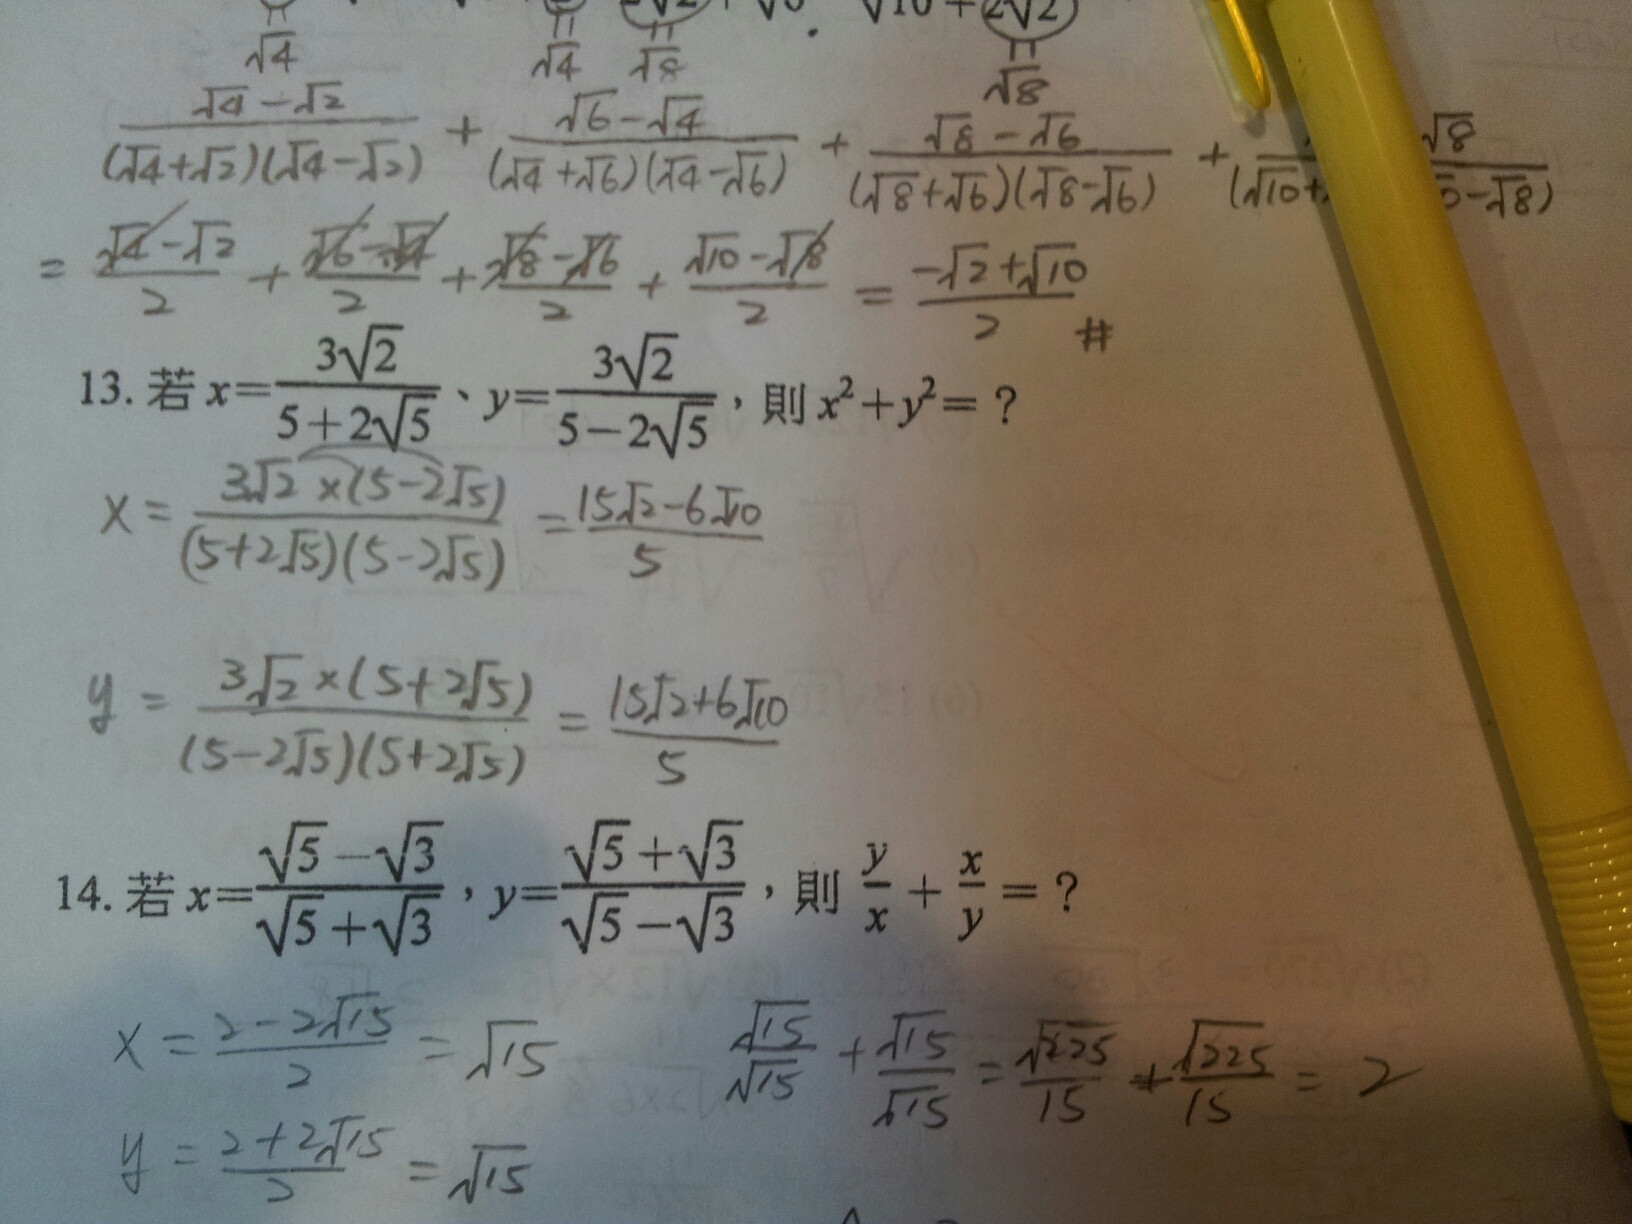 √10+2√2
√4 √4 √8 √8
(√4-√2)/((√4+√2)(√4-√2)) + (√6-√4)/((√4+√6)(√4-√6)) + (√8-√6)/((√8+√6)(√8-√6)) + √8/(√10+ -√8)
= (√4-√2)/2 + (√6-√4)/2 + (√8-√6)/2 + (√10-√8)/2 = (-√2+√10)/2 #
13. 若 x=3√2/(5+2√5)、y=3√2/(5-2√5),則 x²+y²=?
x = (3√2×(5-2√5))/((5+2√5)(5-2√5)) = (15√2-6√10)/5
y = (3√2×(5+2√5))/((5-2√5)(5+2√5)) = (15√2+6√10)/5
14. 若 x=(√5-√3)/(√5+√3),y=(√5+√3)/(√5-√3),則 y/x + x/y =?
x = (2-2√15)/2 = √15 √15/√15 + √15/√15 = √225/15 + √225/15 = 2
y = (2+2√15)/2 = √15